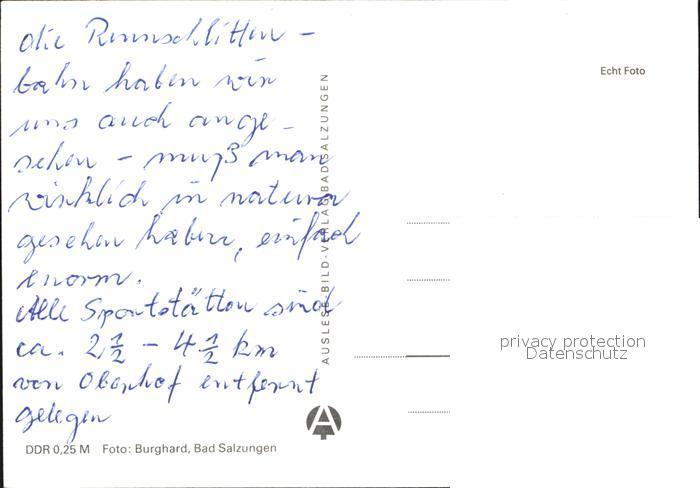 die Rennschlitten -
bahn haben wir
uns auch ange -
sehen - muß man
wirklich in natura
gesehen haben, einfach
enorm.
Alle Sportstätten sind
ca. 2 1/2 - 4 1/2 km
von Oberhof entfernt
gelegen
DDR 0,25 M Foto: Burghard, Bad Salzungen
AUSLESE-BILD-VERLAG BAD SALZUNGEN
A
Echt Foto
privacy protection
Datenschutz